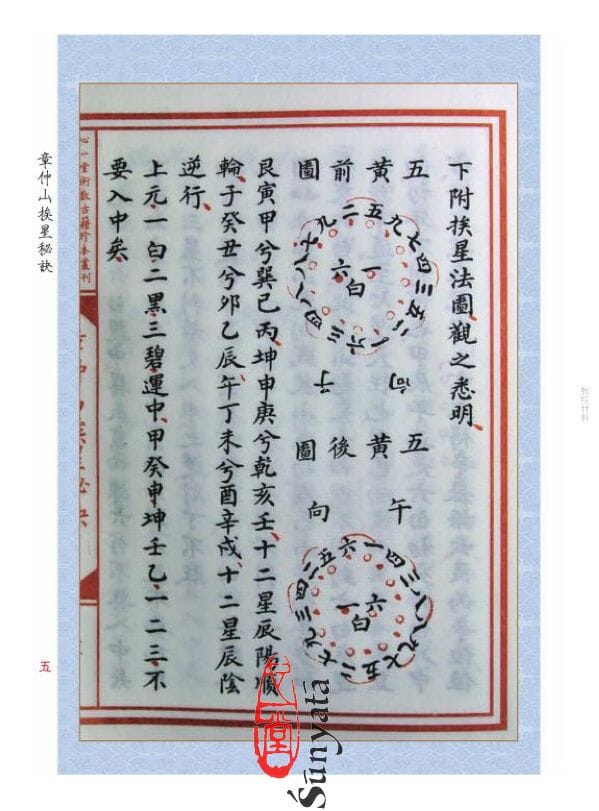 下附挨星法圖觀之悉明
五黃前圖
一白六
子向
五黃後圖
午向
六白一
艮寅甲兮巽巳丙坤申庚兮乾亥壬十二星辰陽順
輪子癸丑兮卯乙辰午丁未兮酉辛戌十二星辰陰
逆行
上元一白二黑三碧運中甲癸申坤壬乙一二三不
要入中矣
心一堂術數古籍珍本叢刊
章仲山挨星秘訣
五
心一堂
Śūnyatā